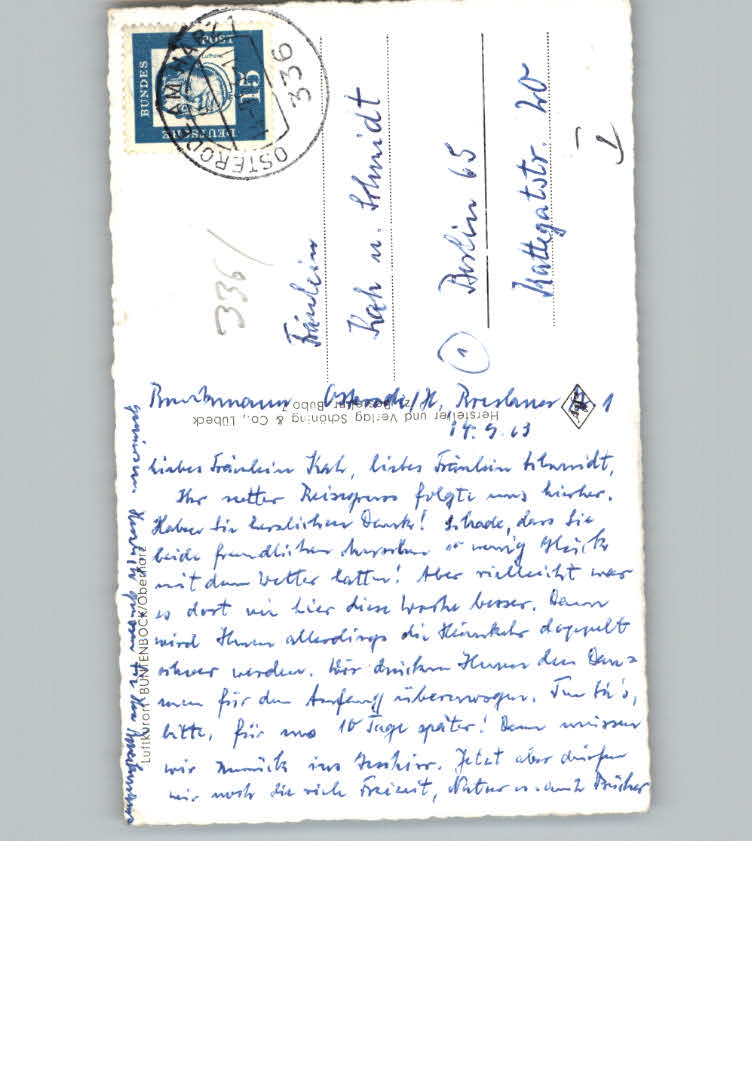 DEUTSCHE
BUNDES
POST
15
OSTERODE AM HARZ 1
336
336/
Fräulein
Kah u. Schmidt
1 Berlin 65
Kattegatstr. 20
I
Hersteller und Verlag Schöning & Co., Lübeck
Luftkurort BUNTENBOCK/Oberharz
Osterode/H, Breslauer 1
14. 9. 63
Liebes Fräulein Kah, liebes Fräulein Schmidt,
Ihr netter Reisegruss folgte uns hierher.
Haben Sie herzlichen Dank! Schade, dass Sie
beide freundlichen so wenig Glück
mit dem Wetter hatten! Aber vielleicht war
es dort wie hier diese Woche besser. Dann
wird Ihnen allerdings die Heimkehr doppelt
schwer werden. Wir drücken Ihnen den Dau=
men für den Anfang. Tun Sie's,
bitte, für uns 10 Tage später! Dann müssen
wir zurück ins Geschirr. Jetzt aber dürfen
wir noch die viele Freizeit, Natur u. Bücher
geniessen. Herzlich grüssen Sie Ihre